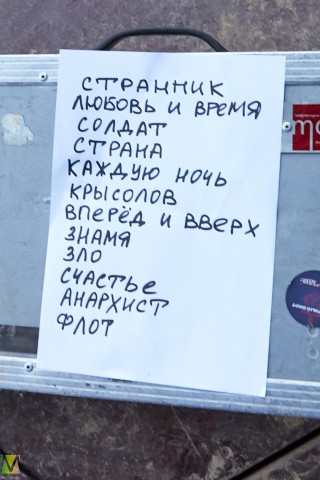 СТРАННИК
ЛЮБОВЬ И ВРЕМЯ
СОЛДАТ
СТРАНА
КАЖДУЮ НОЧЬ
КРЫСОЛОВ
ВПЕРЁД И ВВЕРХ
ЗНАМЯ
ЗЛО
СЧАСТЬЕ
АНАРХИСТ
ФЛОТ